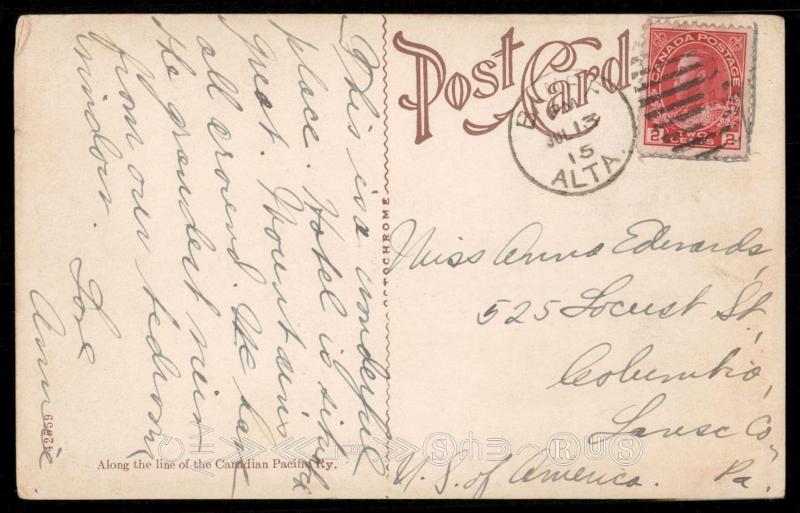 This is a wonderful
place. Hotel is simply
great. Mountains
all around. We have
the grandest view
from our bedroom
window. Love
Annie.
Post Card
PM
JUL 13
15
ALTA.
CANADA POSTAGE
2 TWO 2
CENTS
OCTOCHROME
Miss Anna Edwards,
525 Locust St,
Columbia,
Lanc Co,
U. S. of America. Pa.
Along the line of the Canadian Pacific Ry.